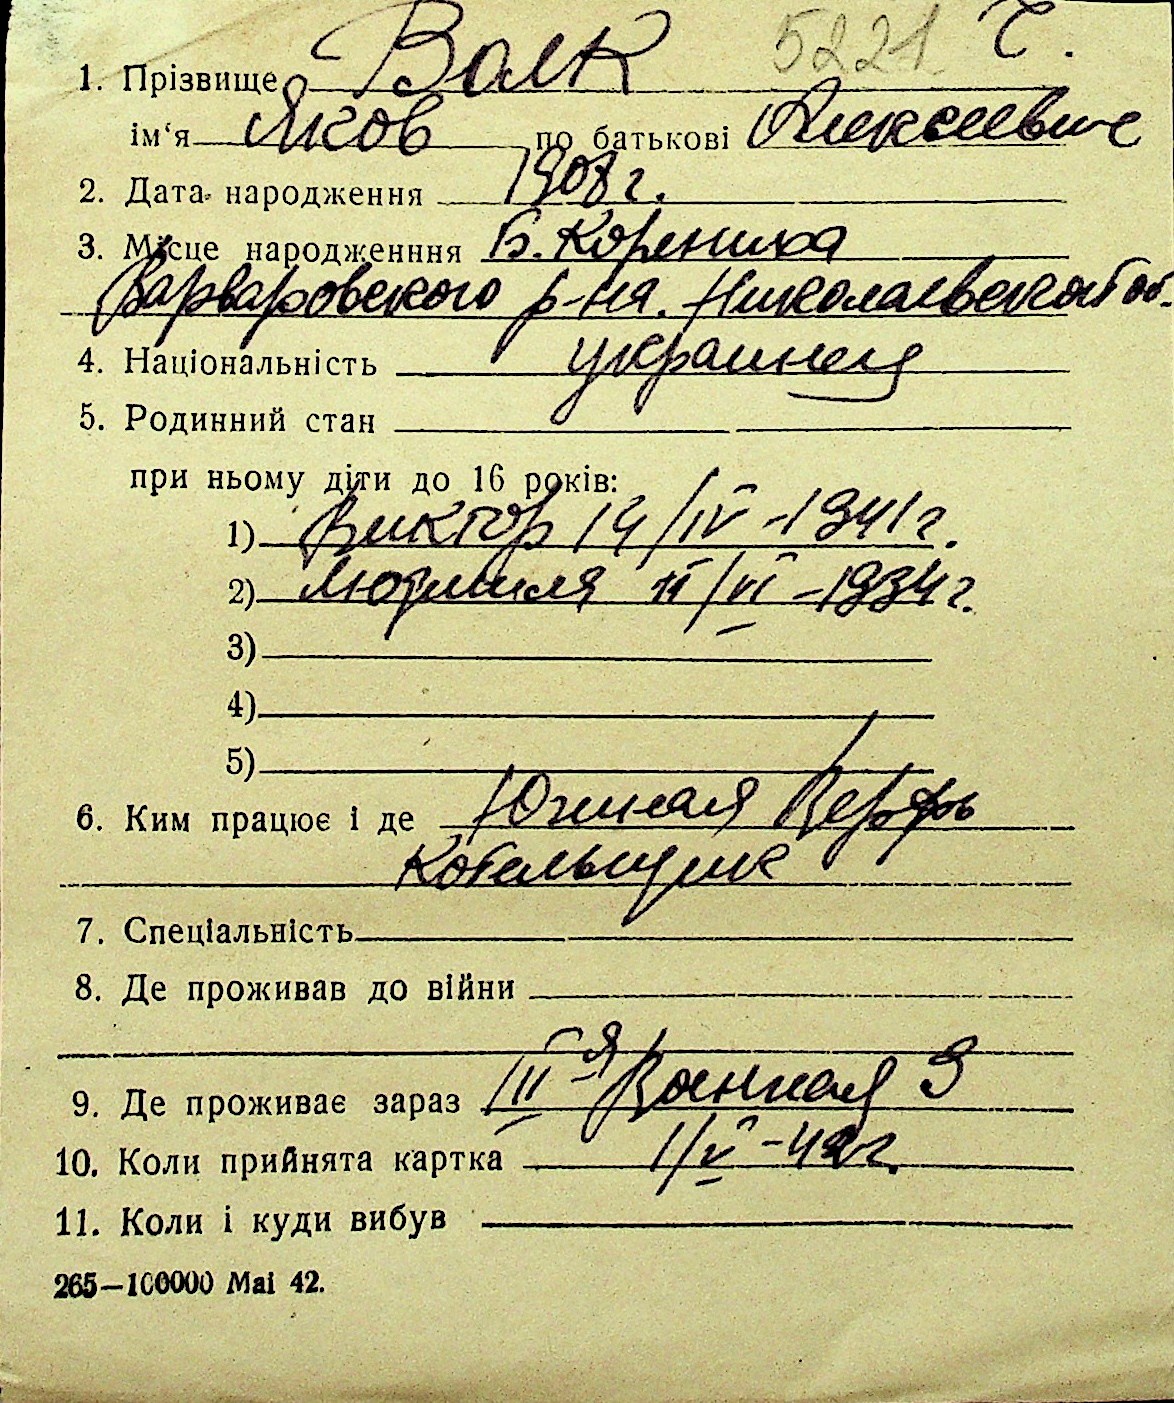 5221 Г.
1. Прізвище Волк
ім‘я Яков по батькові Алексеевич
2. Дата народження 1908 г.
3. Місце народженння Б. Корениха
Варваровского р-на. Николаевской об.
4. Національність украинец
5. Родинний стан
при ньому діти до 16 років:
1) Виктор 14/IV - 1941 г.
2) Людмила II/VI - 1934 г.
3)
4)
5)
6. Ким працює і де Южная Верфь
Котельщик
7. Спеціальність
8. Де проживав до війни
9. Де проживає зараз III-я Военная 9
10. Коли прийнята картка 1/V - 42 г.
11. Коли і куди вибув
265—100000 Маі 42.